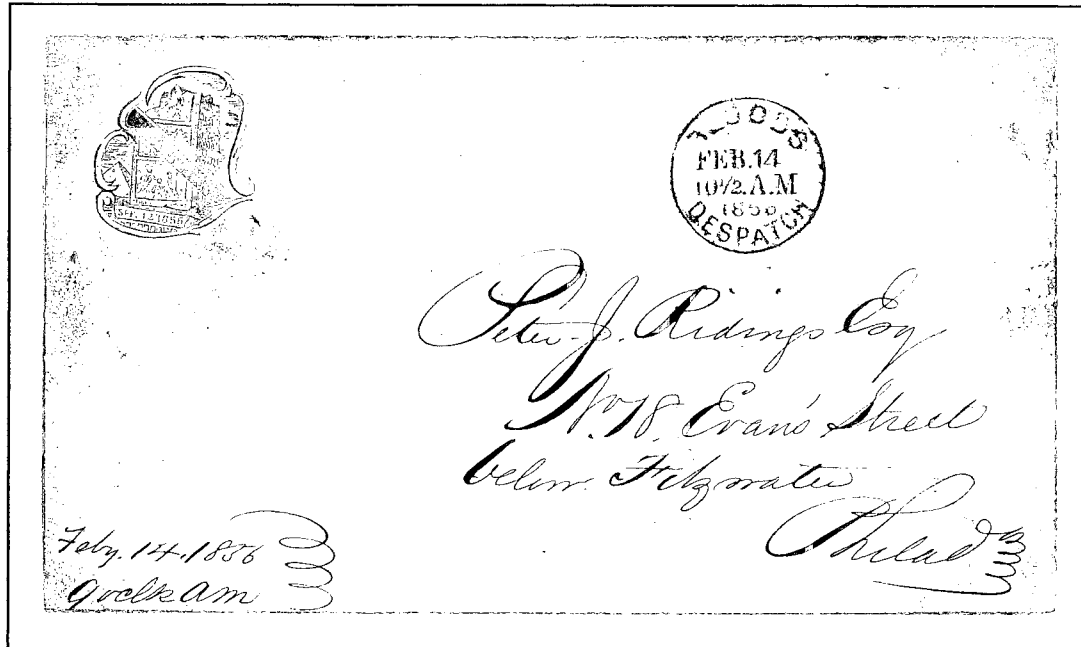 BLOODS
FEB.14
10½.A.M
1856
DESPATCH
Peter. J. Ridings Esq
No 78. Evan's Street
below. Fitzwater
Philad
Feby. 14. 1856
9 oclk am